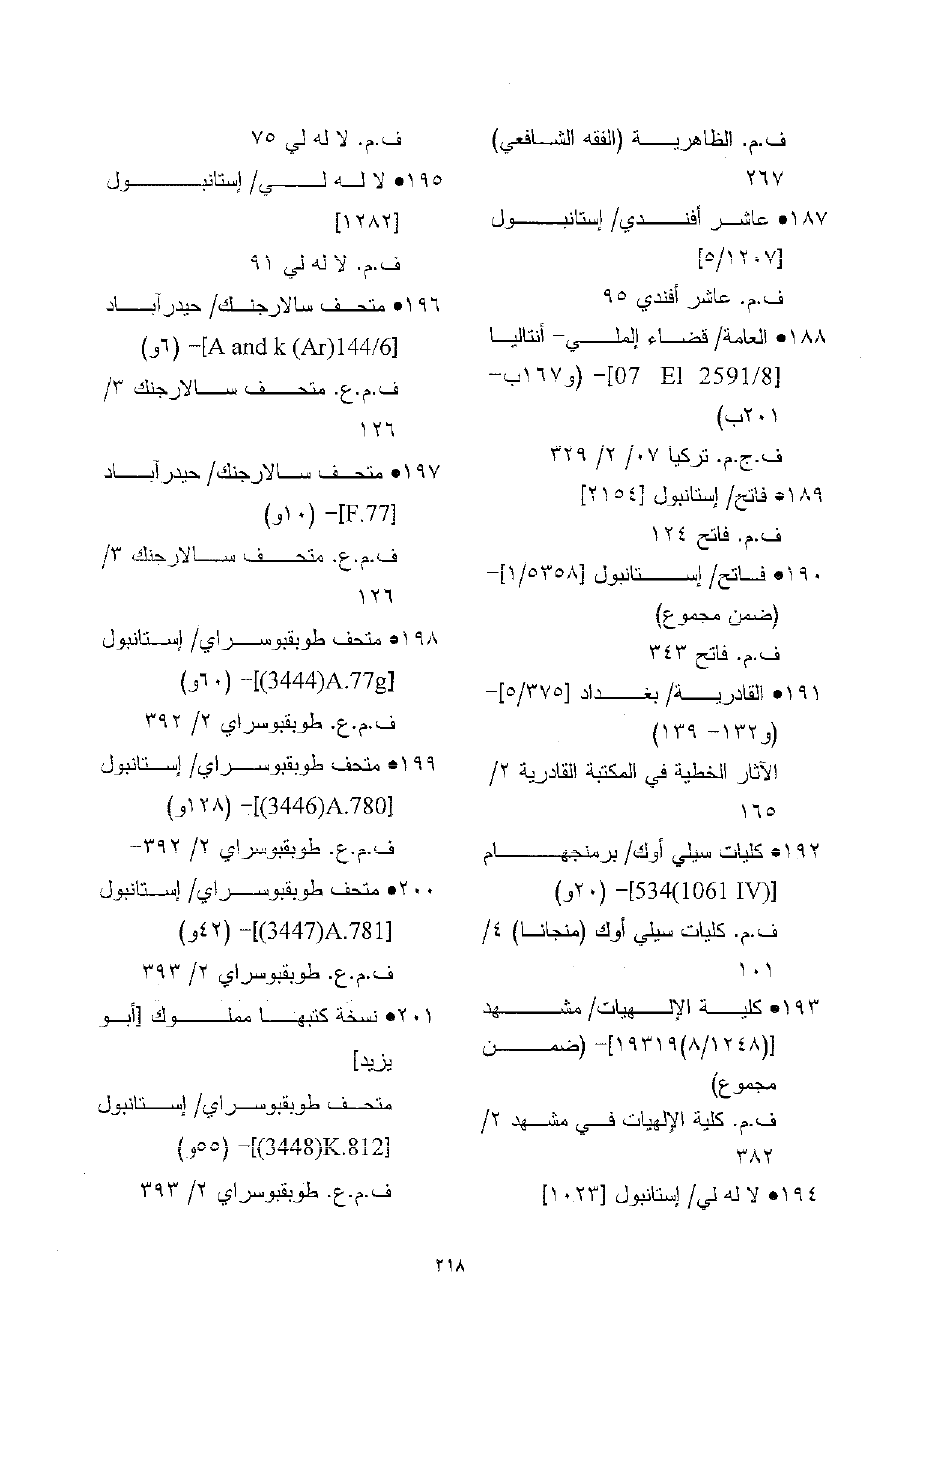 ف.م. الظاهرية (الفقه الشافعي)
٢٦٧
١٨٧• عاشر أفندي/ إستانبول
[٥/١٢٠٧]
ف.م. عاشر أفندي ٩٥
١٨٨• العامة/ قضاء إلملي- أنتاليا
[07 El 2591/8]- (و١٦٧ب-
٢٠١ب)
ف.ج.م. تركيا ٠٧/ ٢/ ٣٢٩
١٨٩• فاتح/ إستانبول [٢١٥٤]
ف.م. فاتح ١٢٤
١٩٠• فاتح/ إستانبول [١/٥٣٥٨]-
(ضمن مجموع)
ف.م. فاتح ٣٤٣
١٩١• القادرية/ بغداد [٥/٣٧٥]-
(و١٣٢- ١٣٩)
الآثار الخطية في المكتبة القادرية ٢/
١٦٥
١٩٢• كليات سيلي أوك/ برمنجهام
[534(1061 IV)]- (٢٠و)
ف.م. كليات سيلي أوك (منجانا) ٤/
١٠١
١٩٣• كلية الإلهيات/ مشهد
[١٩٣١٩(٨/١٢٤٨)]- (ضمن
مجموع)
ف.م. كلية الإلهيات في مشهد ٢/
٣٨٢
١٩٤• لا له لي/ إستانبول [١٠٢٣]
ف.م. لا له لي ٧٥
١٩٥• لا له لي/ إستانبول
[١٢٨٢]
ف.م. لا له لي ٩١
١٩٦• متحف سالارجنك/ حيدرآباد
[A and k (Ar)144/6]- (٦و)
ف.م.ع. متحف سالارجنك ٣/
١٢٦
١٩٧• متحف سالارجنك/ حيدرآباد
[F.77]- (١٠و)
ف.م.ع. متحف سالارجنك ٣/
١٢٦
١٩٨• متحف طوبقبوسراي/ إستانبول
[(3444)A.77g]- (٦٠و)
ف.م.ع. طوبقبوسراي ٢/ ٣٩٢
١٩٩• متحف طوبقبوسراي/ إستانبول
[(3446)A.780]- (١٢٨و)
ف.م.ع. طوبقبوسراي ٢/ ٣٩٢-
٢٠٠• متحف طوبقبوسراي/ إستانبول
[(3447)A.781]- (٤٢و)
ف.م.ع. طوبقبوسراي ٢/ ٣٩٣
٢٠١• نسخة كتبها مملوك [أبو
يزيد]
متحف طوبقبوسراي/ إستانبول
[(3448)K.812]- (٥٥و)
ف.م.ع. طوبقبوسراي ٢/ ٣٩٣
٢١٨